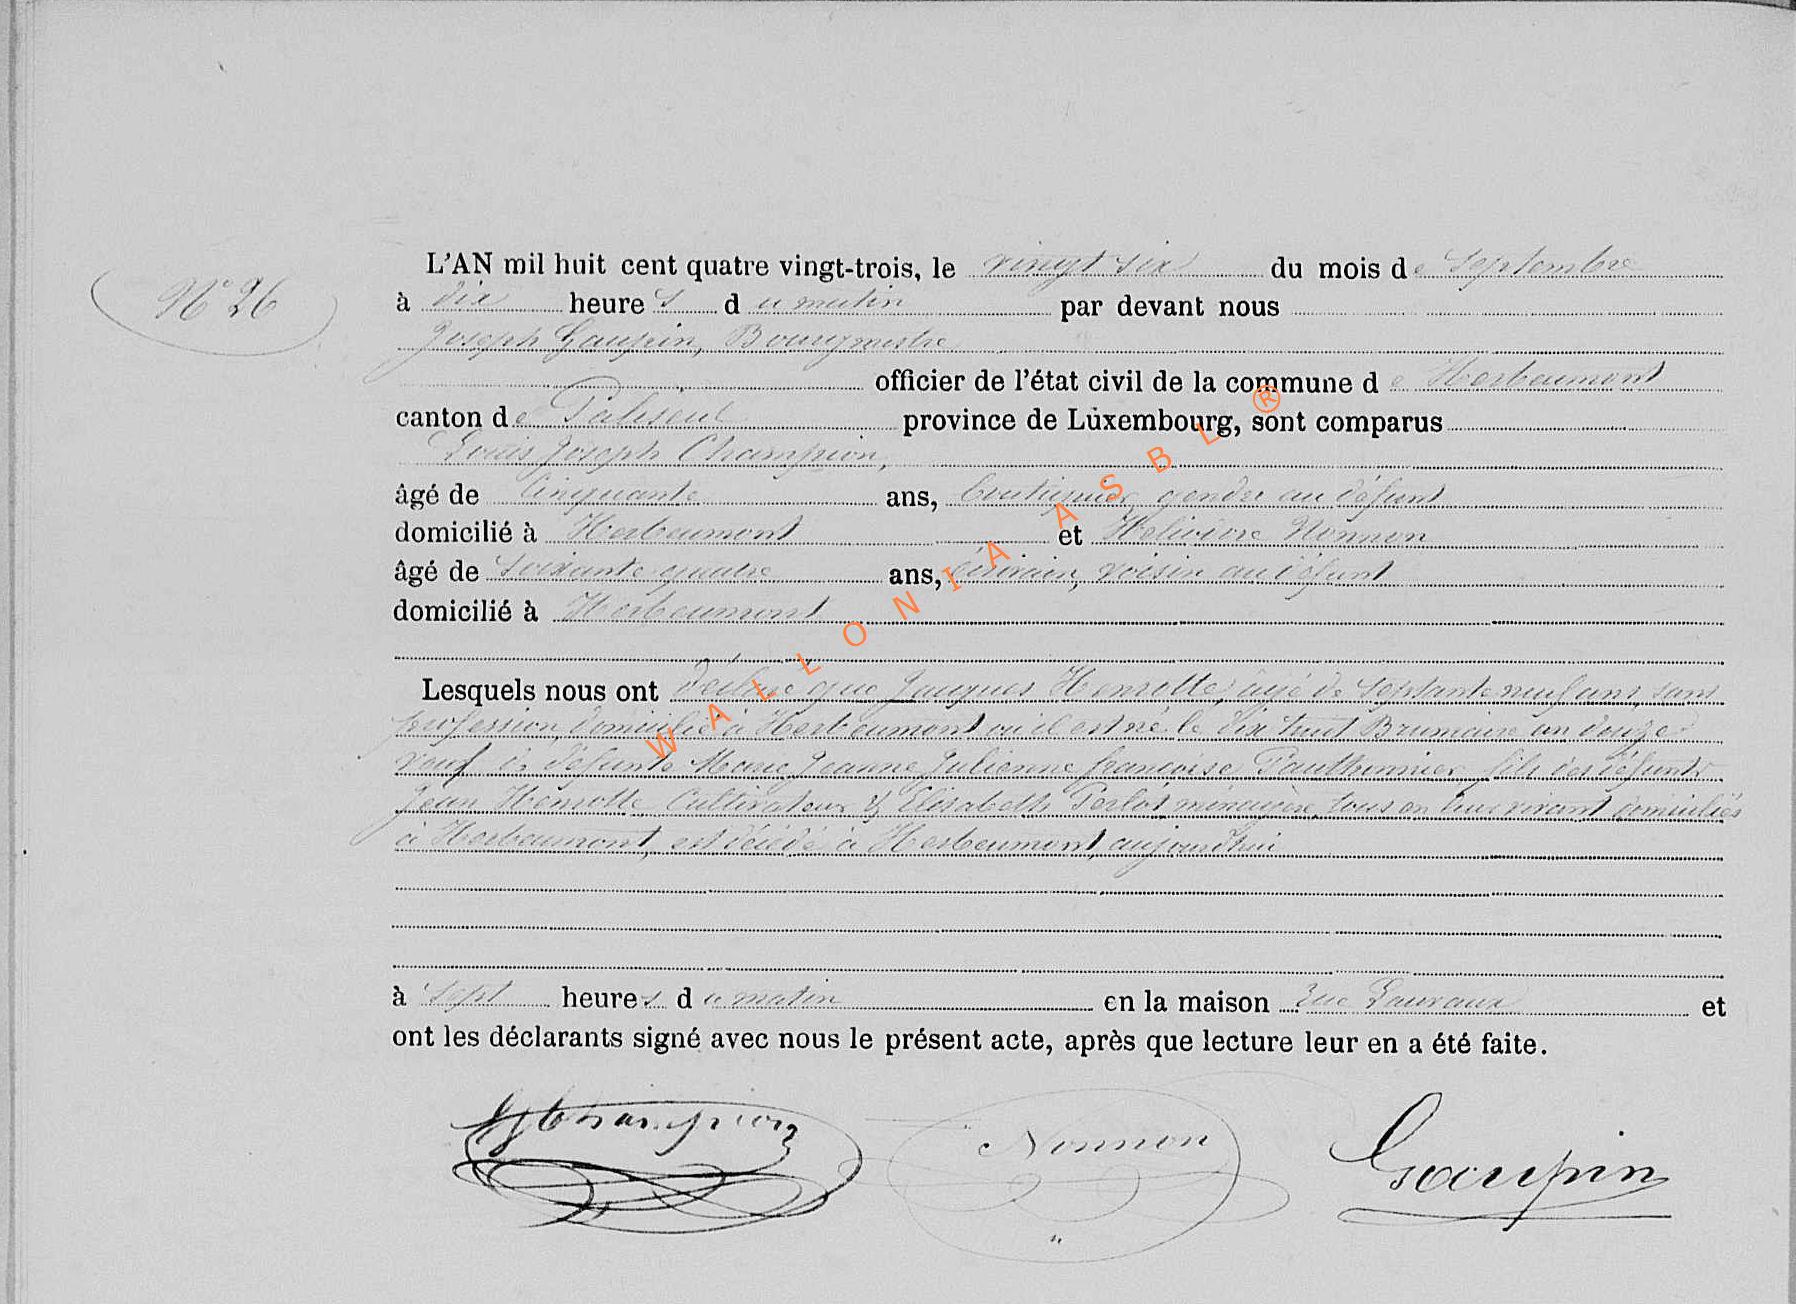 N° 26
L'AN mil huit cent quatre vingt-trois, le vingt six du mois de Septembre
à dix heures du matin par devant nous
Joseph Gaupin, Bourgmestre
officier de l'état civil de la commune de Herbeumont
canton de Paliseul province de Luxembourg, sont comparus
Louis Joseph Champion,
âgé de Cinquante ans, boutiquier, gendre au défunt
domicilié à Herbeumont et Nonnon
âgé de Soixante quatre ans, voisin au défunt
domicilié à Herbeumont
Lesquels nous ont déclaré que Jacques Henrotte, âgé de Septante neuf ans, sans
profession, domicilié à Herbeumont où il est né le dix huit Brumaire an douze
veuf de défunte Marie Jeanne Julienne françoise Pauthinnier fils des défunts
Jean Henrotte, Cultivateur & Elisabeth Perlot ménagère, tous en leur vivant domiciliés
à Herbeumont, est décédé à Herbeumont, aujourd'hui
à Sept heures du matin en la maison rue Lauvaux et
ont les déclarants signé avec nous le présent acte, après que lecture leur en a été faite.
Champion Nonnon Gaupin
WALLONIA ASBL ®